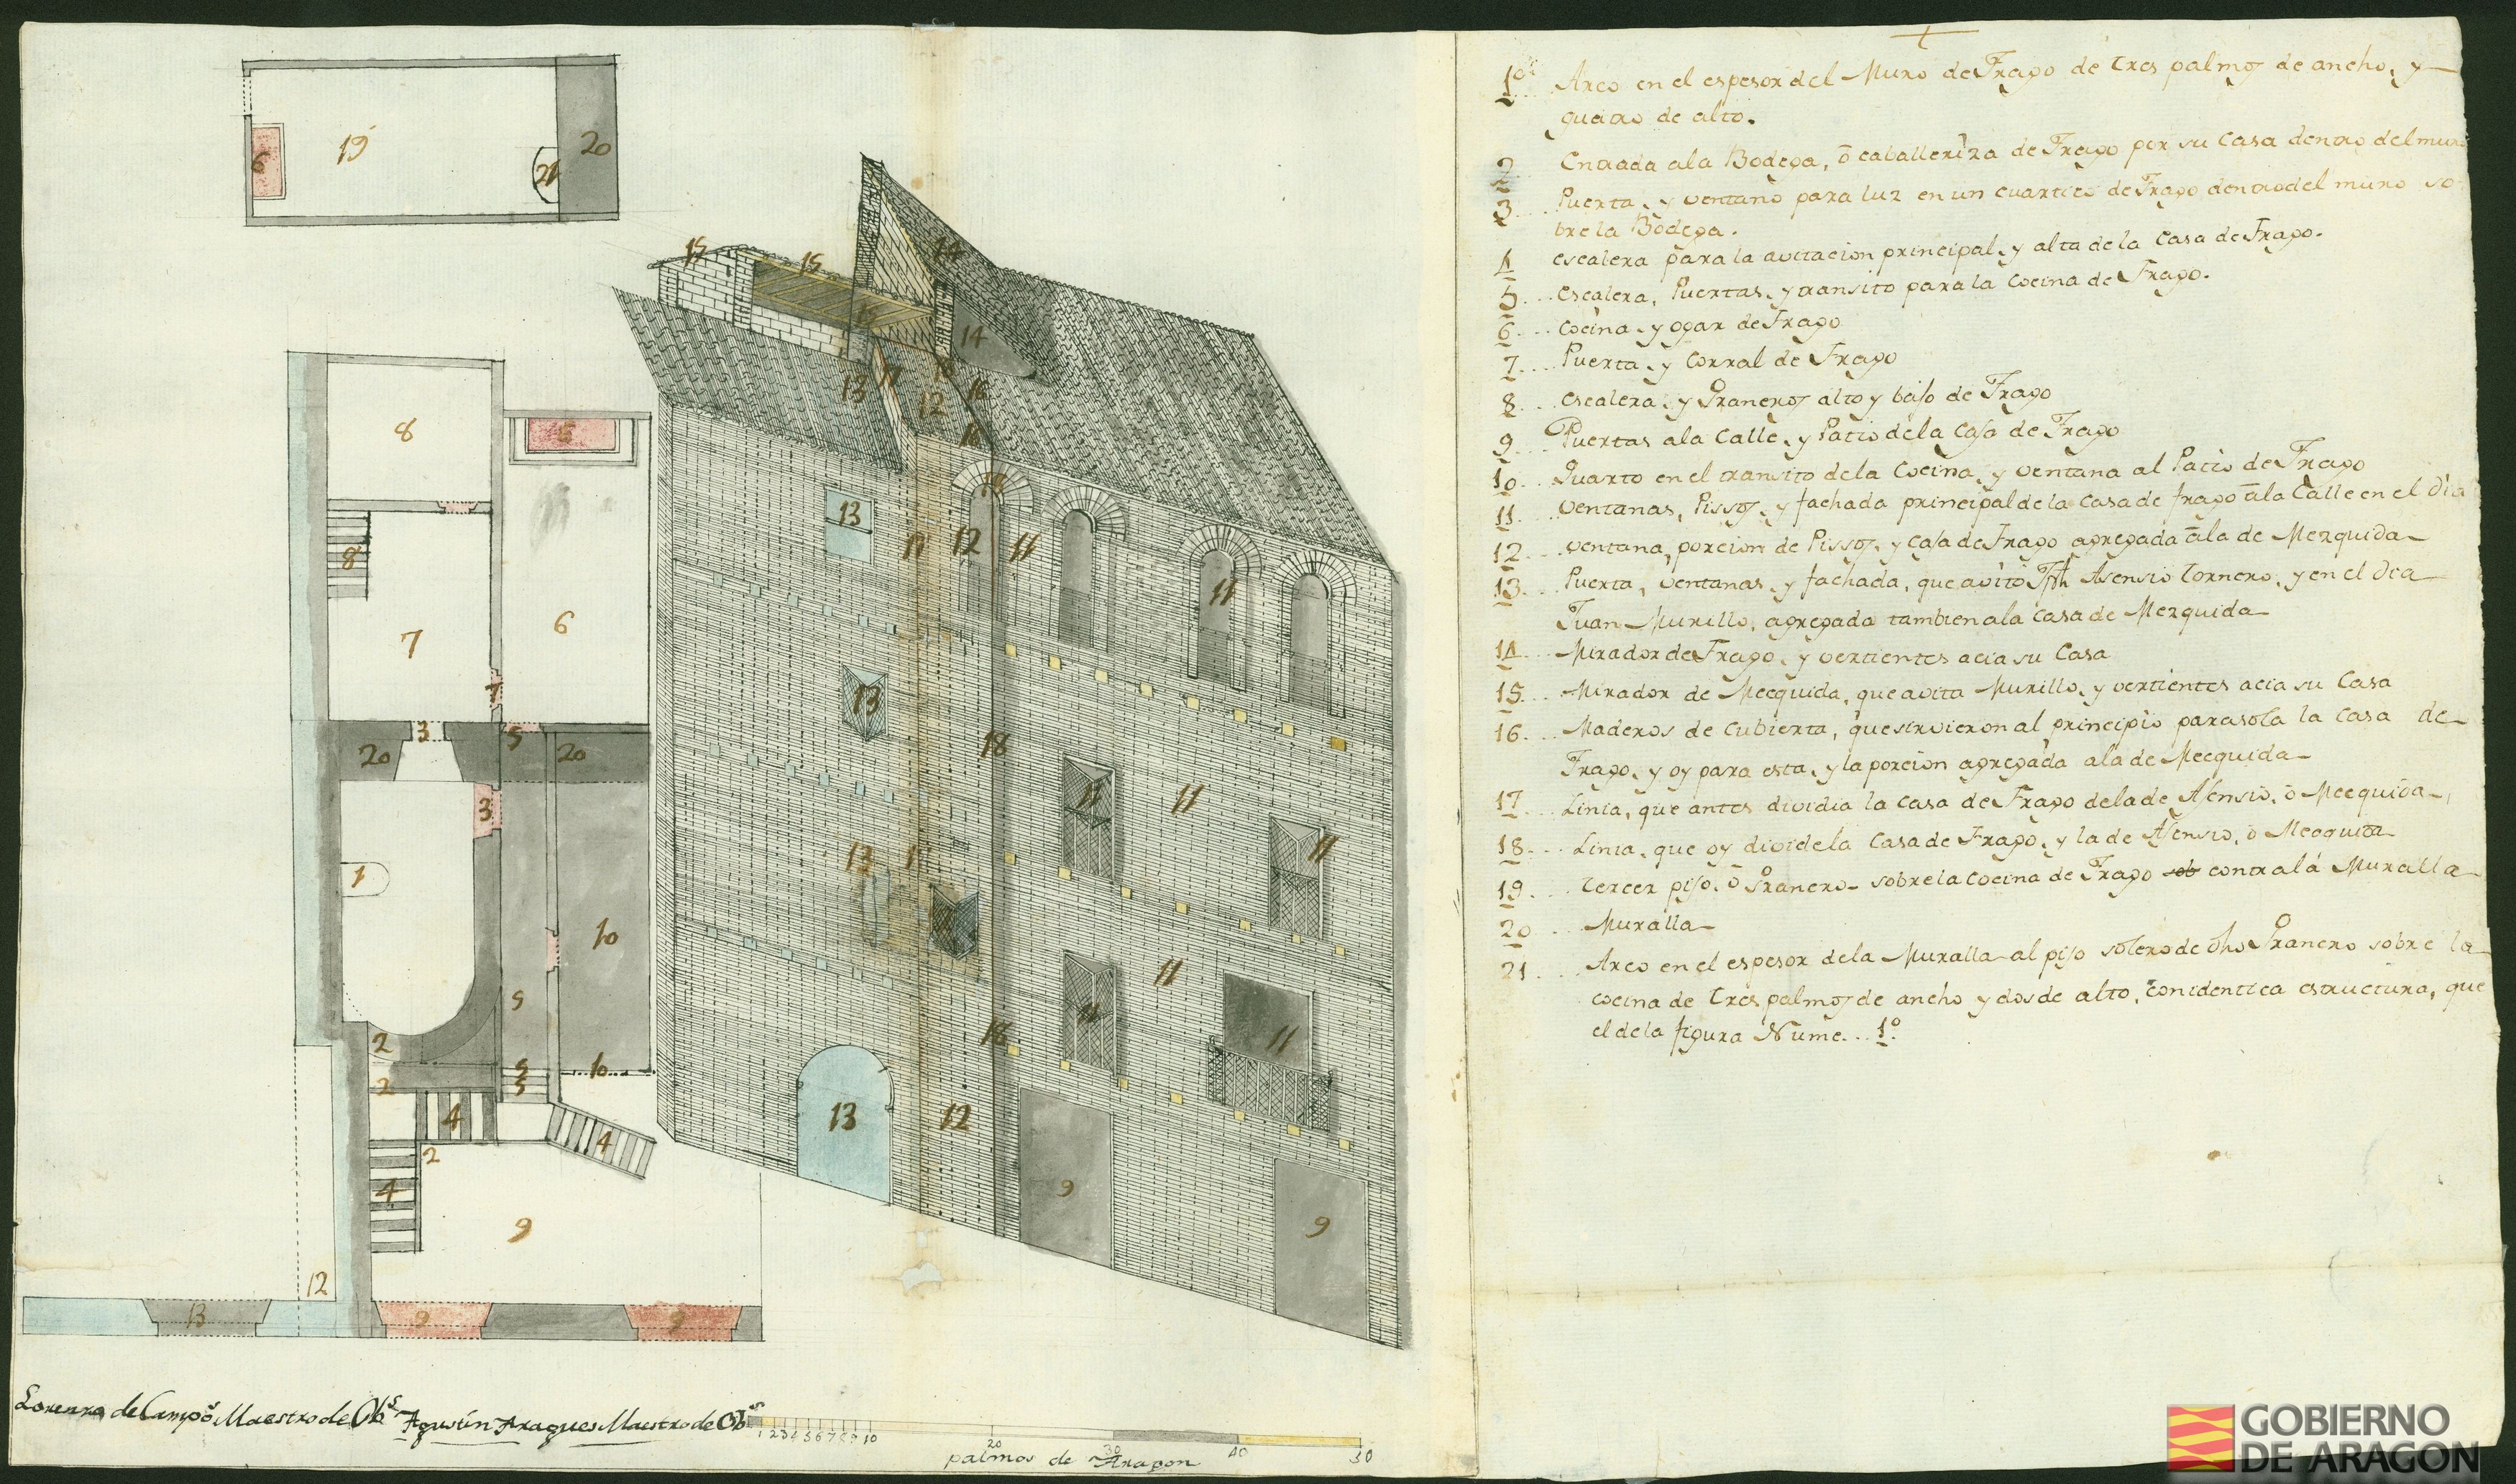 19
20
6
21
15
15
14
15
14
13
17
18
16
12
16
16
8
6
13
12
12
17
11
11
11
8
6
7
13
7
3
5
20
20
18
11
11
3
11
1
13
17
10
5
11
11
11
2
18
5
10
5
2
4
13
12
4
2
4
9
9
9
12
13
9
9
Lorenzo de Campos Maestro de Obs. Agustin Aragues Maestro de Obs.
1 2 3 4 5 6 7 8 9 10 20 30 40 50
palmos de Aragon
1º Arco en el espesor del Muro de Frago de tres palmos de ancho, y
quatro de alto.
2 Entrada ala Bodega, ō caballeriza de Frago por su Casa dentro del muro
3 Puerta, y ventano para luz en un cuartico de Frago dentro del muro so
bre la Bodega.
4 escalera para la avitacion principal, y alta de la Casa de Frago.
5 escalera, Puertas, y transito para la Cocina de Frago.
6 Cocina, y ogar de Frago
7 Puerta, y Corral de Frago
8 escalera, y Graneros alto y bajo de Frago
9 Puertas ala Calle, y Patio dela Casa de Frago
10 Quarto en el transito dela Cocina, y ventana al Patio de Frago
11 ventanas, Pissos, y fachada principal de la Casa de frago ala Calle en el dia
12 ventana, porcion de Pissos, y Casa de Frago agregada ala de Mezquida
13 Puerta, ventanas, y fachada, que avitò Asensio tornero, y en el dia
Juan Murillo, agregada tambien ala Casa de Mezquida
14 Mirador de Frago, y vertientes acia su Casa
15 Mirador de Mecquida, que avita Murillo, y vertientes acia su Casa
16 Maderos de Cubierta, que sirvieron al principio para sola la Casa de
Frago, y oy para esta, y la porcion agregada ala de Mecquida
17 Linia, que antes dividia la Casa de Frago dela de Asensio, ō Mecquida
18 Linia, que oy divide la Casa de Frago, y la de Asensio, ō Mecquida
19 tercer piso, ō Granero sobre la cocina de Frago contra la Muralla
20 Muralla
21 Arco en el espesor dela Muralla al piso solero de dho Granero sobre la
cocina de tres palmos de ancho y dos de alto, con identica estructura, que
el de la figura Nume. 1º
GOBIERNO
DE ARAGON